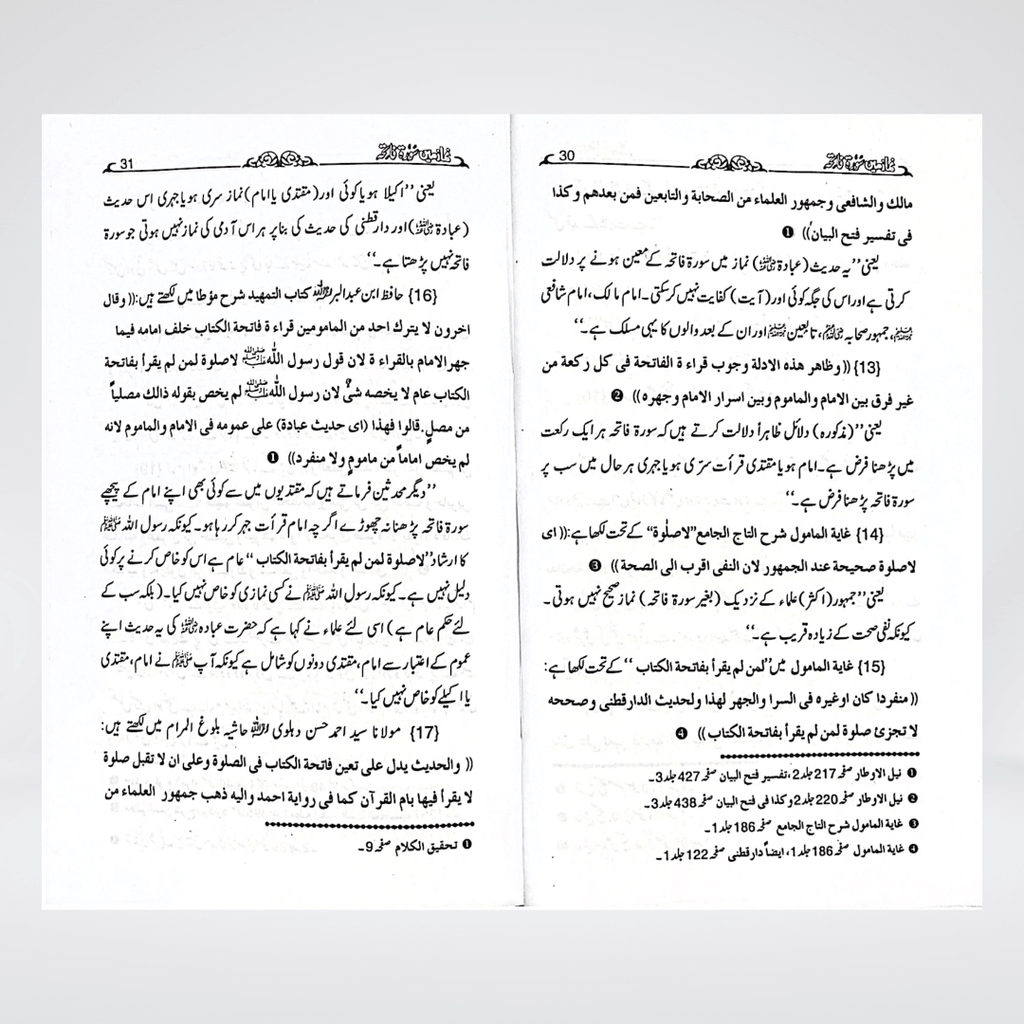 نماز میں سورۃ فاتحہ 30
مالك والشافعى وجمهور العلماء من الصحابة والتابعين فمن بعدهم وكذا
فى تفسير فتح البيان)) ❶
یعنی ’’یہ حدیث (عبادۃ رضی اللہ عنہ) نماز میں سورۃ فاتحہ کے معین ہونے پر دلالت
کرتی ہے اور اس کی جگہ کوئی اور (آیت) کفایت نہیں کر سکتی۔ امام مالک، امام شافعی
جمہور صحابہ رضی اللہ عنہم، تابعین رحمہم اللہ اور ان کے بعد والوں کا یہی مسلک ہے۔‘‘
{13} ((وظاهر هذه الادلة وجوب قراء ة الفاتحة فى كل ركعة من
غير فرق بين الامام والماموم وبين اسرار الامام وجهره)) ❷
یعنی ’’(مذکورہ) دلائل ظاہراً دلالت کرتے ہیں کہ سورۃ فاتحہ ہر ایک رکعت
میں پڑھنا فرض ہے۔ امام ہو یا مقتدی قرأت سرّی ہو یا جہری ہر حال میں سب پر
سورۃ فاتحہ پڑھنا فرض ہے۔‘‘
{14} غاية المامول شرح التاج الجامع ”لاصلٰوة“ کے تحت لکھا ہے: ((اى
لاصلوة صحيحة عند الجمهور لان النفى اقرب الى الصحة)) ❸
یعنی ’’جمہور (اکثر) علماء کے نزدیک (بغیر سورۃ فاتحہ) نماز صحیح نہیں ہوتی۔
کیونکہ نفی صحت کے زیادہ قریب ہے۔‘‘
{15} غاية المامول میں ”لمن لم يقرأ بفاتحة الكتاب “ کے تحت لکھا ہے:
((منفردا كان اوغيره فى السرا والجهر لهذا ولحديث الدارقطنى وصححه
لا تجزئ صلوة لمن لم يقرأ بفاتحة الكتاب)) ❹
❶ نيل الاوطار صفحہ 217 جلد 2، تفسير فتح البيان صفحہ 427 جلد 3۔
❷ نيل الاوطار صفحہ 220 جلد 2 وكذا فى فتح البيان صفحہ 438 جلد 3۔
❸ غاية المامول شرح التاج الجامع صفحہ 186 جلد 1۔
❹ غاية المامول صفحہ 186 جلد 1، ايضاً دارقطنى صفحہ 122 جلد 1۔
نماز میں سورۃ فاتحہ 31
یعنی ’’اکیلا ہو یا کوئی اور (مقتدی یا امام) نماز سری ہو یا جہری اس حدیث
(عبادۃ رضی اللہ عنہ) اور دارقطنی کی حدیث کی بنا پر ہر اس آدمی کی نماز نہیں ہوتی جو سورۃ
فاتحہ نہیں پڑھتا ہے۔‘‘
{16} حافظ ابن عبدالبر رحمہ اللہ کتاب التمهيد شرح مؤطا میں لکھتے ہیں: ((وقال
اخرون لا يترك احد من المامومين قراء ة فاتحة الكتاب خلف امامه فيما
جهرالامام بالقراء ة لان قول رسول الله ﷺ لاصلوة لمن لم يقرأ بفاتحة
الكتاب عام لا يخصه شئٌ لان رسول الله ﷺ لم يخص بقوله ذالك مصلياً
من مصلٍ. قالوا فهذا (اى حديث عبادة) على عمومه فى الامام والماموم لانه
لم يخص اماماً من مامومٍ ولا منفرد)) ❶
’’دیگر محدثین فرماتے ہیں کہ مقتدیوں میں سے کوئی بھی اپنے امام کے پیچھے
سورۃ فاتحہ پڑھنا نہ چھوڑے اگرچہ امام قرأت جہر کر رہا ہو۔ کیونکہ رسول اللہ ﷺ
کا ارشاد ”لاصلوة لمن لم يقرأ بفاتحة الكتاب “ عام ہے اس کو خاص کرنے پر کوئی
دلیل نہیں ہے۔ کیونکہ رسول اللہ ﷺ نے کسی نمازی کو خاص نہیں کیا۔ (بلکہ سب کے
لئے حکم عام ہے) اسی لئے علماء نے کہا ہے کہ حضرت عبادہ رضی اللہ عنہ کی یہ حدیث اپنے
عموم کے اعتبار سے امام، مقتدی دونوں کو شامل ہے کیونکہ آپ ﷺ نے امام، مقتدی
یا اکیلے کو خاص نہیں کیا۔‘‘
{17} مولانا سید احمد حسن دہلوی رحمہ اللہ حاشیہ بلوغ المرام میں لکھتے ہیں:
((والحديث يدل على تعين فاتحة الكتاب فى الصلوة وعلى ان لا تقبل صلوة
لا يقرأ فيها بام القرآن كما فى رواية احمد واليه ذهب جمهور العلماء من
❶ تحقيق الكلام صفحہ 9۔